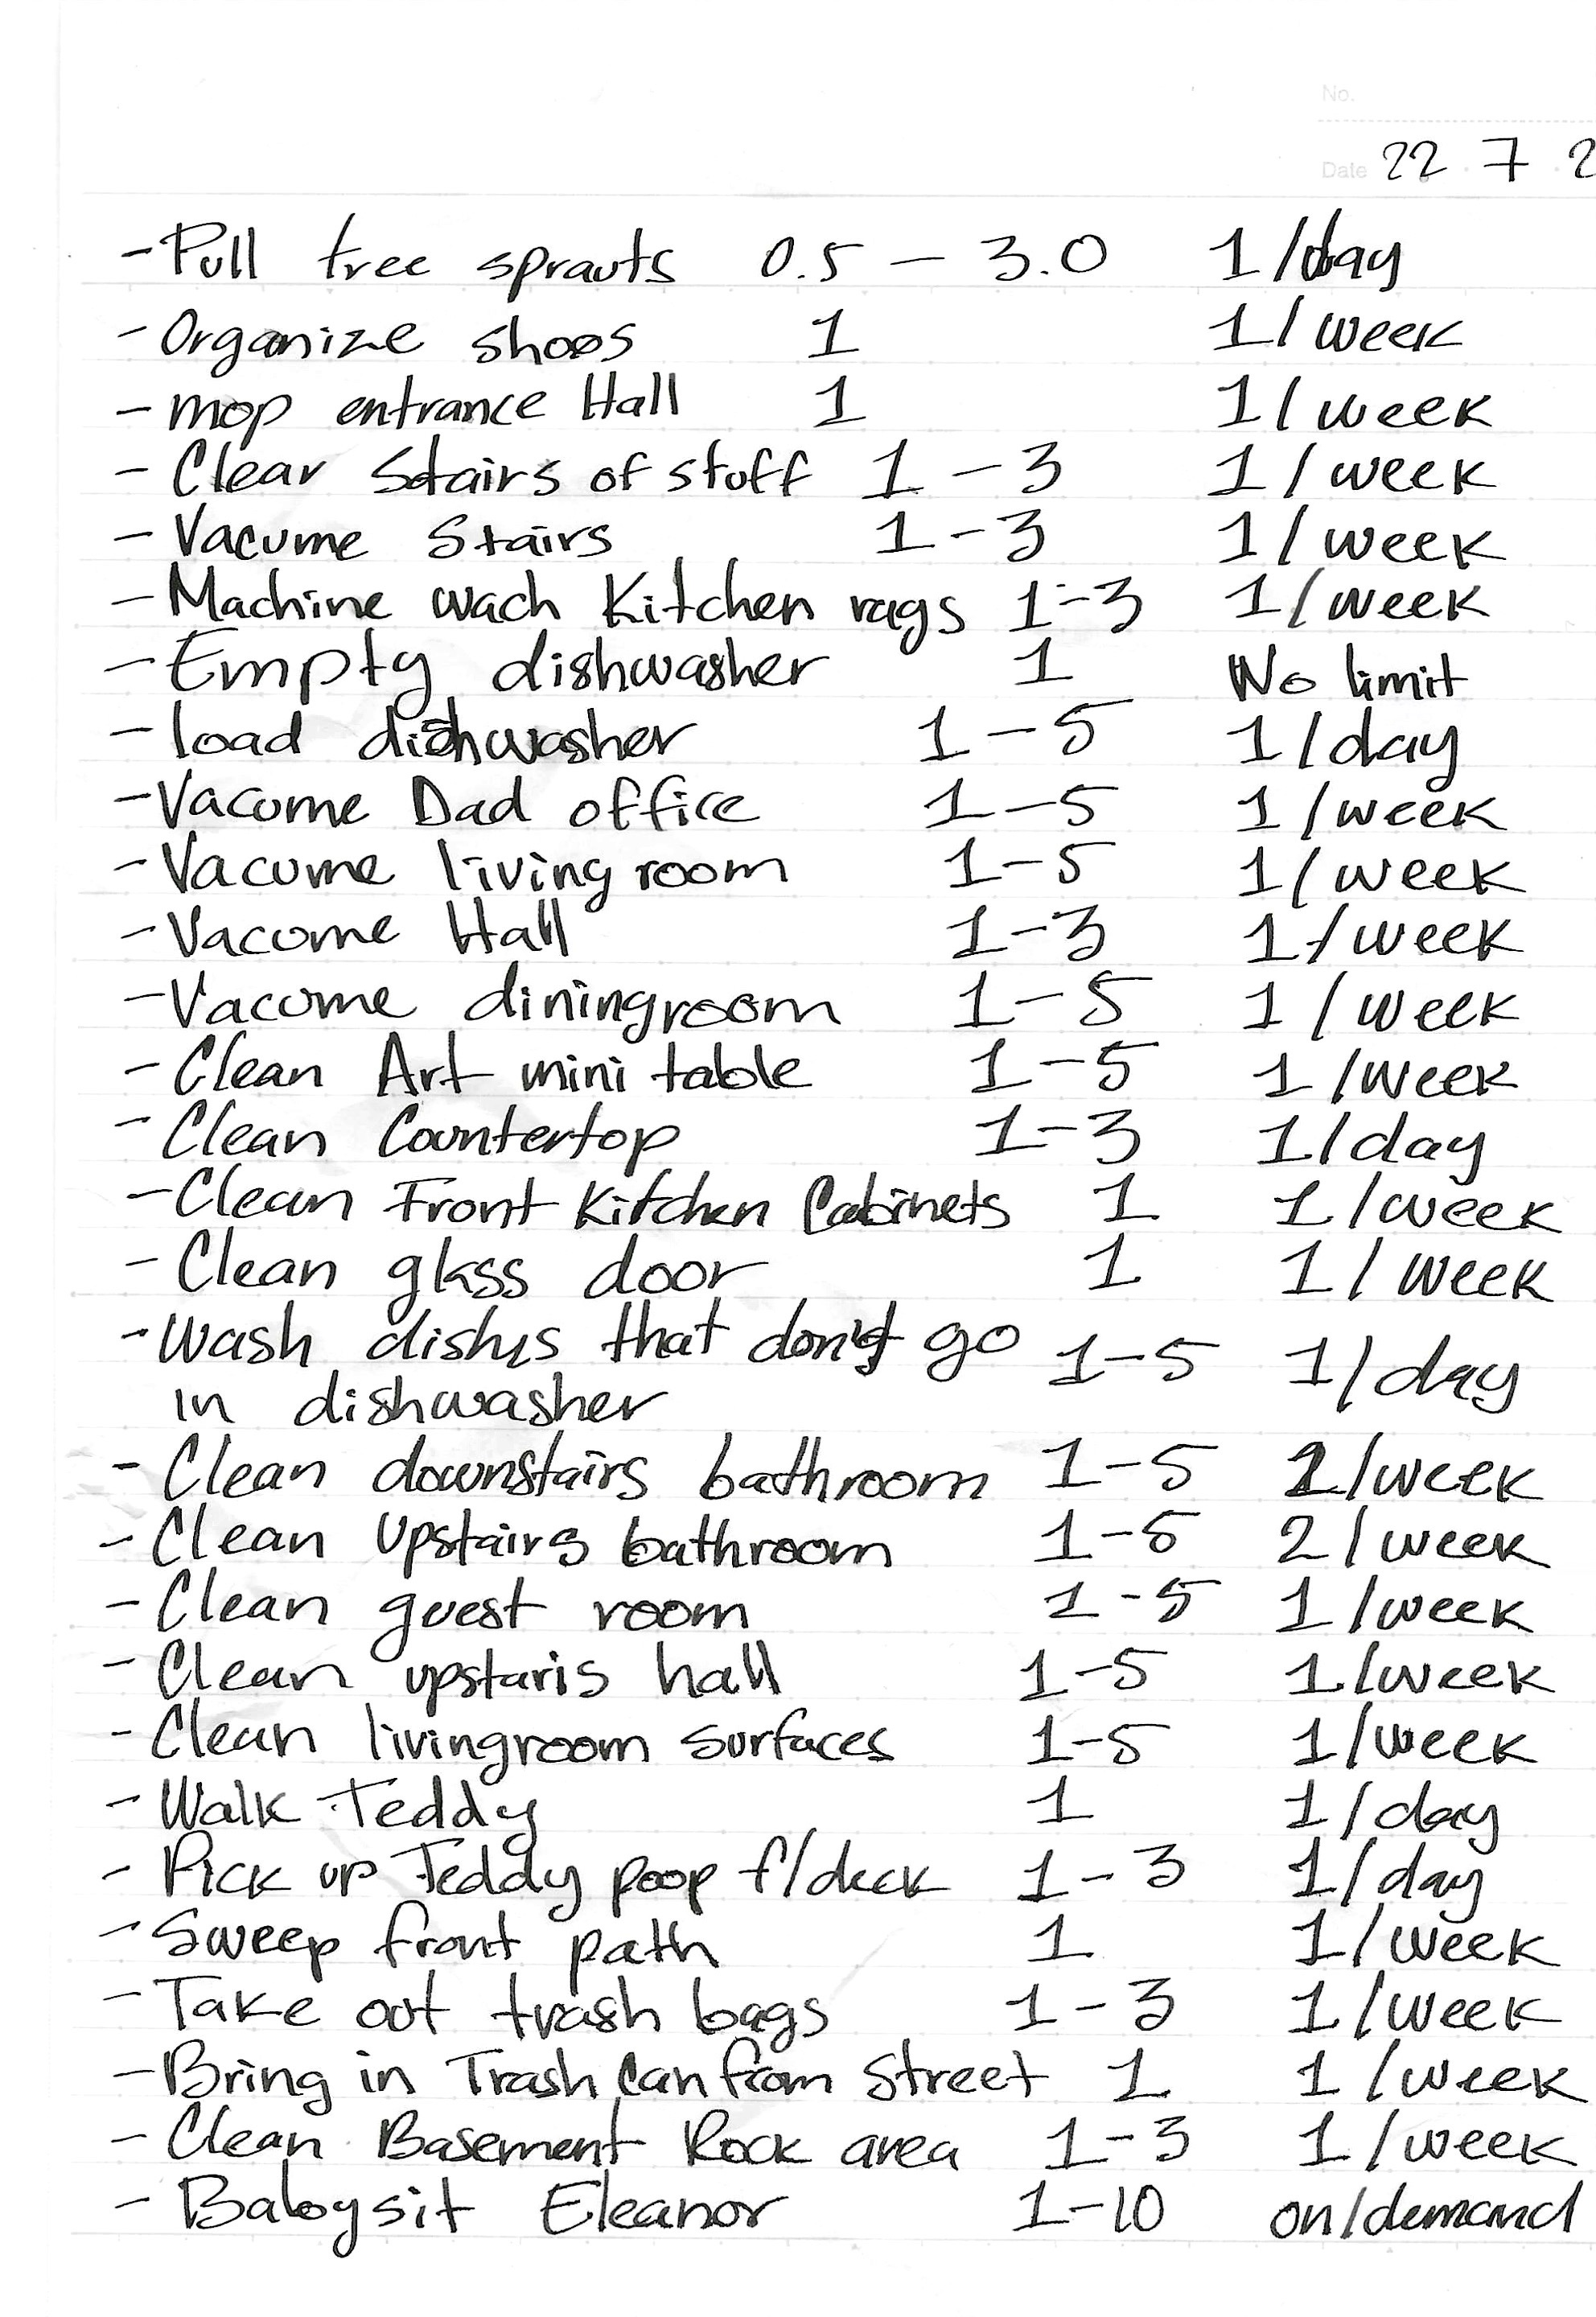 No.
Date 22 7 2
- Pull tree sprouts 0.5 - 3.0 1/day
- Organize shoes 1 1/week
- mop entrance Hall 1 1/week
- Clear Stairs of stuff 1-3 1/week
- Vacume Stairs 1-3 1/week
- Machine wach Kitchen rags 1-3 1/week
- Empty dishwasher 1 No limit
- load dishwasher 1-5 1/day
- Vacume Dad office 1-5 1/week
- Vacume living room 1-5 1/week
- Vacume Hall 1-3 1/week
- Vacume diningroom 1-5 1/week
- Clean Art mini table 1-5 1/week
- Clean Countertop 1-3 1/day
- Clean Front Kitchen Cabinets 1 1/week
- Clean glass door 1 1/week
- Wash dishes that don't go 1-5 1/day
in dishwasher
- Clean downstairs bathroom 1-5 2/week
- Clean Upstairs bathroom 1-5 2/week
- Clean guest room 1-5 1/week
- Clean upstaris hall 1-5 1/week
- Clean livingroom surfaces 1-5 1/week
- Walk Teddy 1 1/day
- Pick up Teddy poop f/deck 1-3 1/day
- Sweep front path 1 1/week
- Take out trash bags 1-3 1/week
- Bring in Trash Can from Street 1 1/week
- Clean Basement Rock area 1-3 1/week
- Babysit Eleanor 1-10 on/demand